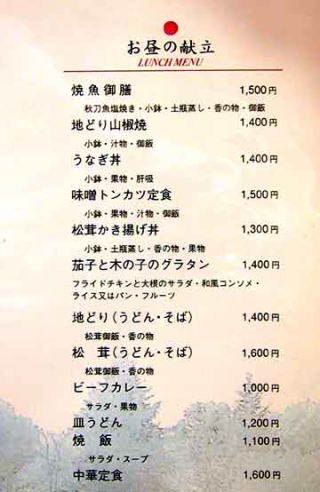 お昼の献立
LUNCH MENU
焼魚御膳 1,500円
秋刀魚塩焼き・小鉢・土瓶蒸し・香の物・御飯
地どり山椒焼 1,400円
小鉢・汁物・御飯
うなぎ丼 1,400円
小鉢・果物・肝吸
味噌トンカツ定食 1,500円
小鉢・果物・汁物・御飯
松茸かき揚げ丼 1,300円
小鉢・土瓶蒸し・香の物・果物
茄子と木の子のグラタン 1,400円
フライドチキンと大根のサラダ・和風コンソメ・
ライス又はパン・フルーツ
地どり(うどん・そば) 1,400円
松茸御飯・香の物
松茸(うどん・そば) 1,600円
松茸御飯・香の物
ビーフカレー 1,000円
サラダ・果物
皿うどん 1,200円
焼飯 1,100円
サラダ・スープ
中華定食 1,600円